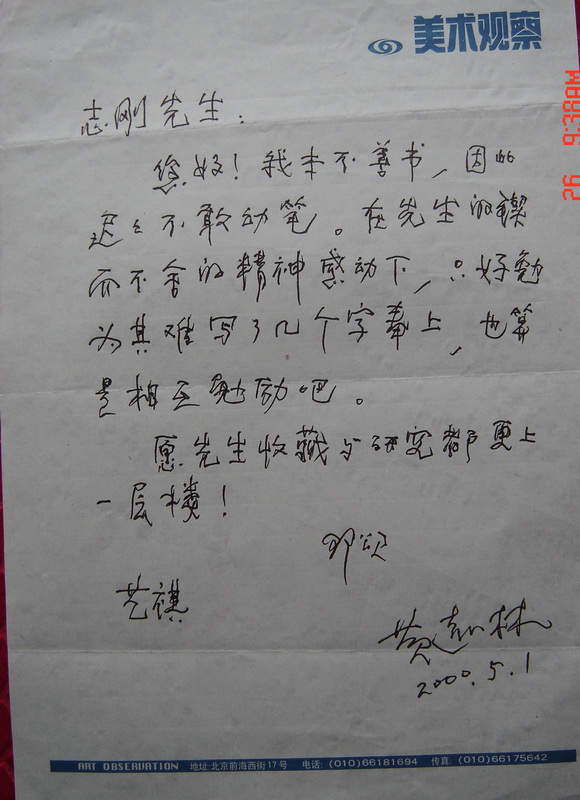 美术观察
志刚先生：
您好！我本不善书，因此
迟迟不敢动笔。在先生的锲
而不舍的精神感动下，只好勉
为其难写了几个字奉上，也算
是相互勉励吧。
愿先生收藏与研究都更上
一层楼！
即颂
艺祺
林
2000.5.1
ART OBSERVATION 地址:北京前海西街17号 电话: (010)66181694 传真: (010)66175642